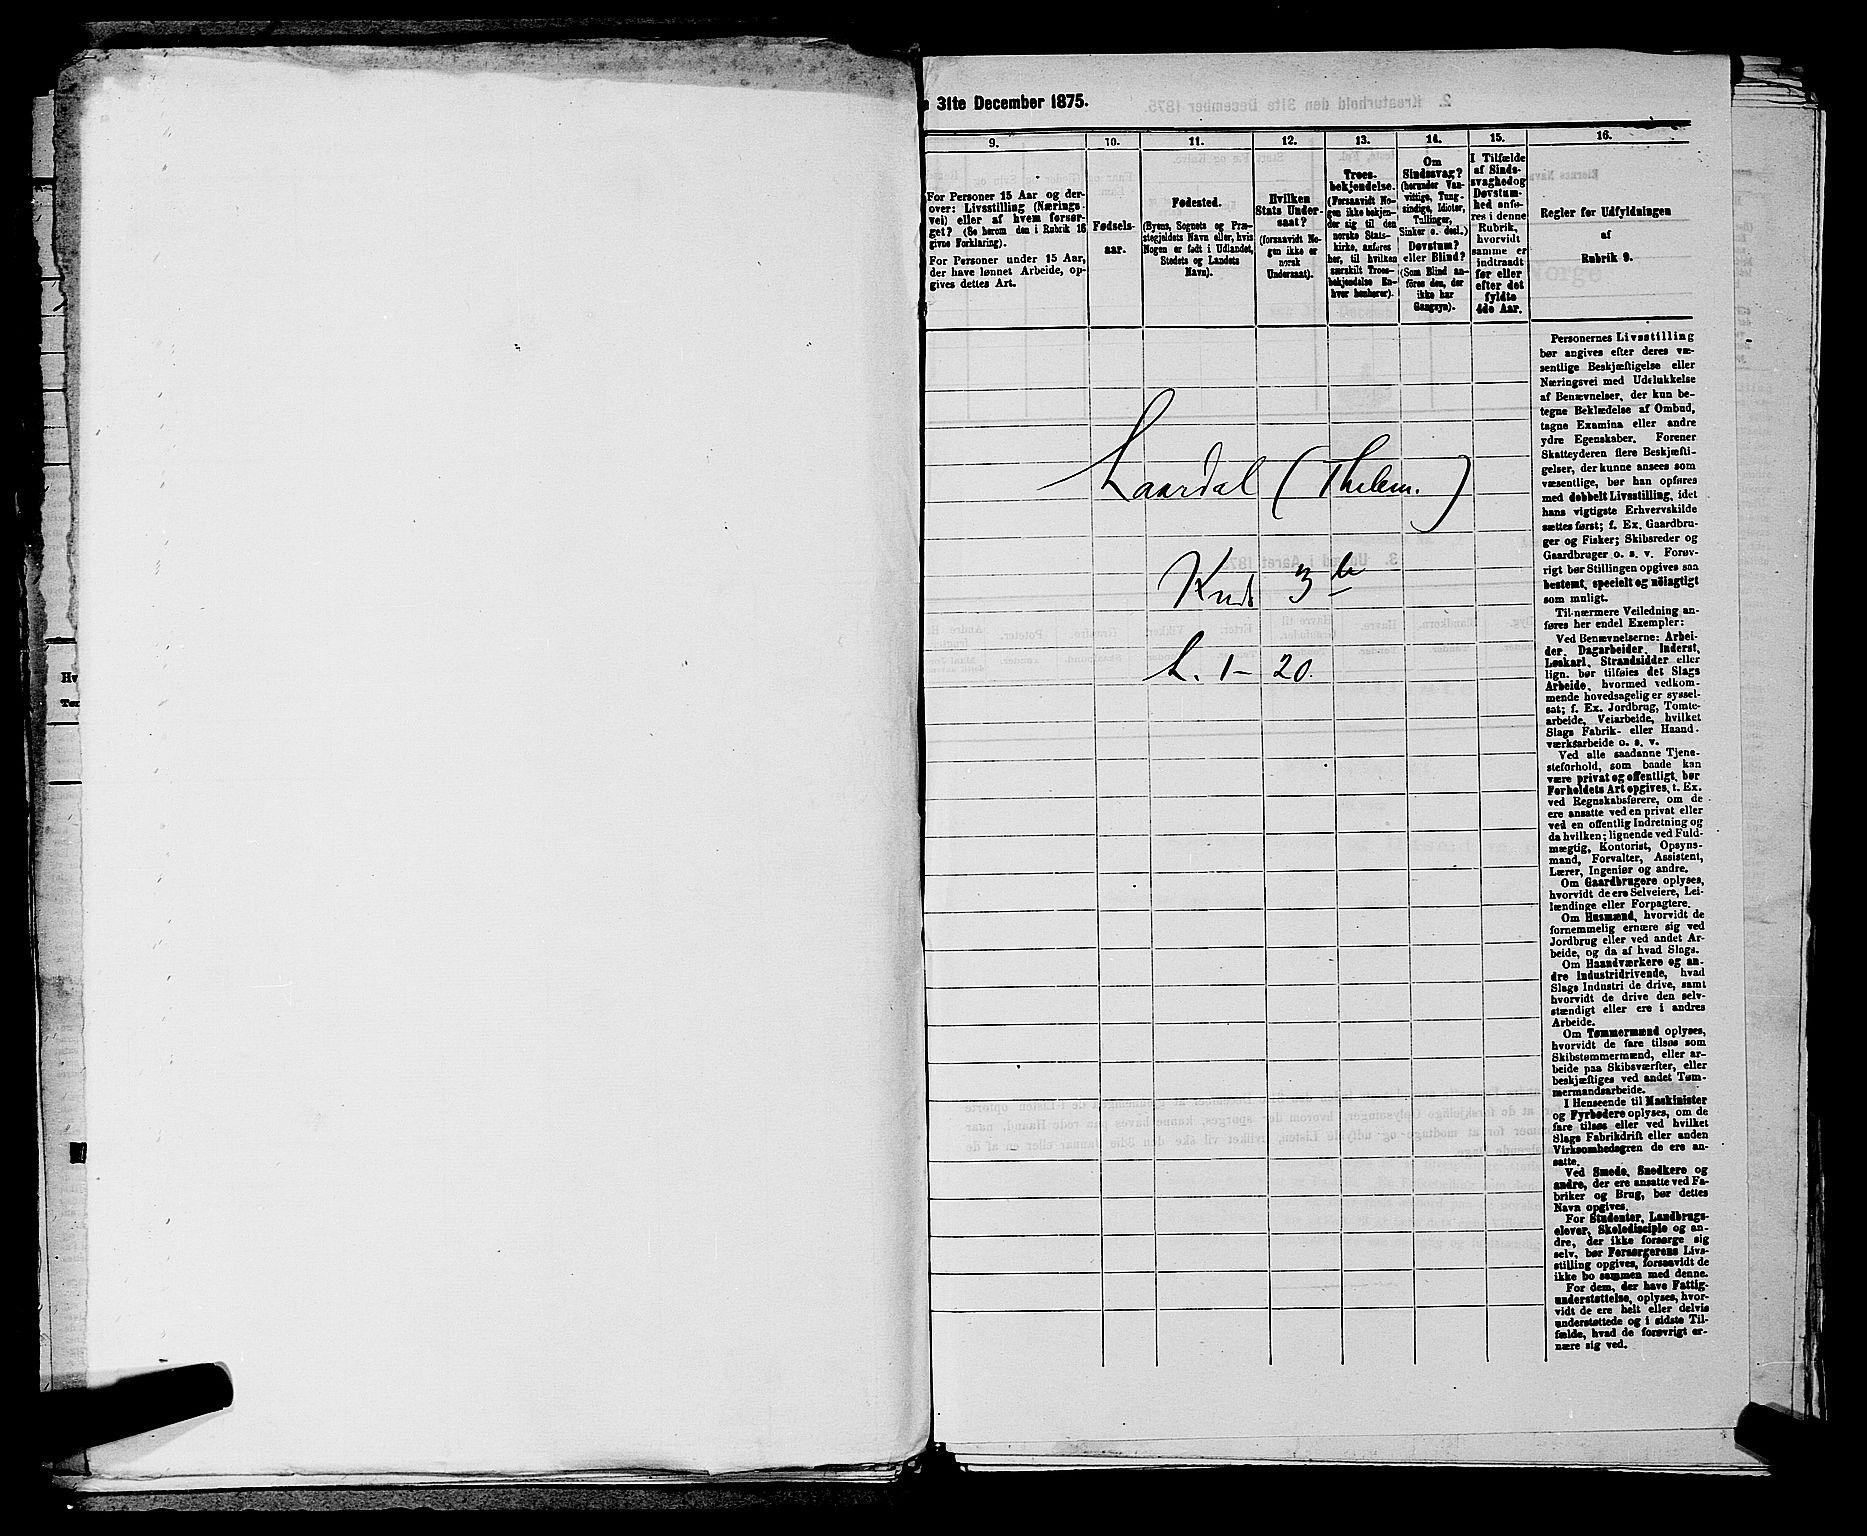 31te December 1875.
9.
For Personer 15 Aar og der-
over: Livsstilling (Nærings-
vei) eller af hvem forsør-
get? (Se herom den i Rubrik 16
givne Forklaring).
For Personer under 15 Aar,
der have lønnet Arbeide, op-
gives dettes Art.
10.
Fødsels-
aar.
11.
Fødested.
(Byens, Sognets og Præ-
stegjeldets Navn eller, hvis
Nogen er født i Udlandet,
Stedets og Landets
Navn).
12.
Hvilken
Stats Under-
saat?
(forsaavidt No-
gen ikke er
norsk
Undersaat).
13.
Troes-
bekjendelse.
(Forsaavidt No-
gen ikke bekjen-
der sig til den
norske Stats-
kirke, anføres
her, til hvilken
særskilt Troes-
bekjendelse En-
hver henhører).
14.
Om
Sindssvag?
(herunder Van-
vittige, Tung-
sindige, Idioter,
Tullinger,
Sinker o. desl.)
Døvstum?
eller Blind?
(Som Blind an-
føres den, der
ikke har
Gangsyn).
15.
I Tilfælde
af Sinds-
svaghed og
Døvstum-
hed anfø-
res i denne
Rubrik,
hvorvidt
samme er
indtraadt
før eller
efter det
fyldte
4de Aar.
16.
Regler før Udfyldningen
af
Rubrik 9.
Personernes Livsstilling
bør angives efter deres væ-
sentlige Beskjæftigelse eller
Næringsvei med Udelukkelse
af Benævnelser, der kun be-
tegne Beklædelse af Ombud,
tagne Examina eller andre
ydre Egenskaber. Forener
Skatteyderen flere Beskjæfti-
gelser, der kunne ansees som
væsentlige, bør han opføres
med dobbelt Livsstilling, idet
hans vigtigste Erhvervskilde
sættes først; f. Ex. Gaardbru-
ger og Fisker; Skibsreder og
Gaardbruger o. s. v. Forøv-
rigt bør Stillingen opgives saa
bestemt, specielt og nöiagtigt
som muligt.
Til nærmere Veiledning an-
føres her endel Exempler:
Ved Benævnelserne: Arbei-
der, Dagarbeider, Inderst,
Løskarl, Strandsidder eller
lign. bør tilføies det Slags
Arbeide, hvormed vedkom-
mende hovedsagelig er syssel-
sat; f. Ex. Jordbrug, Tomte-
arbeide, Veiarbeide, hvilket
Slags Fabrik- eller Haand-
værksarbeide o. s. v.
Ved alle saadanne Tjene-
steforhold, som baade kan
være privat og offentligt, bør
Forholdets Art opgives, t. Ex.
ved Regnskabsførere, om de
ere ansatte ved en privat eller
ved en offentlig Indretning og
da hvilken; lignende ved Fuld-
mægtig, Kontorist, Opsyns-
mand, Forvalter, Assistent,
Lærer, Ingeniør og andre.
Om Gaardbrugere oplyses,
hvorvidt de ere Selveiere, Lei-
lændinge eller Forpagtere.
Om Husmænd, hvorvidt de
fornemmelig ernære sig ved
Jordbrug eller ved andet Ar-
beide, og da af hvad Slags.
Om Haandværkere og an-
dre Industridrivende, hvad
Slags Industri de drive, samt
hvorvidt de drive den selv-
stændigt eller ere i andres
Arbeide.
Om Tømmermænd oplyses,
hvorvidt de fare tilsøs som
Skibstømmermænd, eller ar-
beide paa Skibsværfter, eller
beskjæftiges ved andet Tøm-
mermandsarbeide.
I Henseende til Maskinister
og Fyrbødere oplyses, om de
fare tilsøs eller ved hvilket
Slags Fabrikdrift eller anden
Virksomhedsgren de ere an-
satte.
Ved Smede, Snedkere og
andre, der ere ansatte ved Fa-
briker og Brug, bør dettes
Navn opgives.
For Studenter, Landbrugs-
elever, Skoledisciple og an-
dre, der ikke forsørge sig
selv, bør Forsørgerens Livs-
stilling opgives, forsaavidt de
ikke bo sammen med denne.
For dem, der have Fattig-
understøttelse, oplyses, hvor-
vidt de ere helt eller delvis
understøttede og i sidste Til-
fælde, hvad de forøvrigt er-
nære sig ved.
Laardal (Thelem.)
Kreds 3 b
L. 1 – 20.